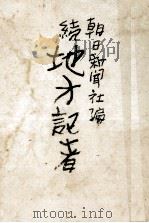 朝日新聞社編
続地方記者